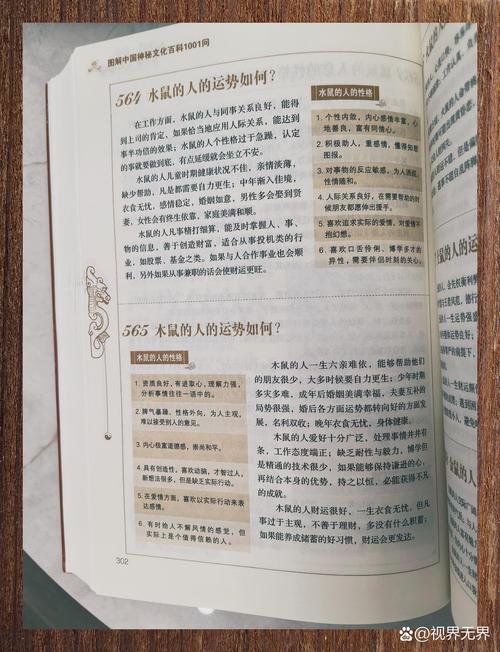 图解中国神秘文化百科1001问
564 水鼠的人的运势如何？
在工作方面，水鼠的人与同事关系良好，能得
到上司的肯定，如果恰当地应用人际关系，能达到
事半功倍的效果；水鼠的人个性过于急躁，认定
的事就要做到底，有点延缓就会坐立不安。
水鼠的人儿童时期健康状况不佳，亲情淡薄，
缺少帮助，凡是都需要自力更生；中年渐入佳境，
衣食无忧，感情稳定，婚姻如意，男性多会娶到贤
妻，女性会有终生依靠，家庭美满和顺。
水鼠的人凡事精打细算，能及时掌握人、事、
物的信息，善于创造财富，适合从事投机类的行
业，如股票、基金之类。如果与人合作事业也会顺
利，另外如果从事兼职的话会使财运更旺。
水鼠的人的性格
1. 个性内敛，内心感情丰富，心
地善良，富有同情心。
2. 积极助人，重感情，懂得知恩
图报。
3. 对事物的反应敏感，为人洒脱，
性情随和。
4. 人际关系良好，在需要帮助的时
候朋友都愿伸出援手。
5. 喜欢追求实际的爱情，对爱情不
抱幻想。
6. 喜欢口舌伶俐、博学多才的
异性，需要伴侣时刻的关心。
565 木鼠的人的运势如何？
木鼠的人的性格
1. 资质良好，有进取心，理解力强，
分析事情往往一语中的。
2. 脾气暴躁，性格外向，为人主观，
难以接受别人的意见。
3. 内心极富道德感，崇尚和平。
4. 具有创造性，喜欢动脑，才智过人，
新想法很多，但是缺乏实际行动。
5. 在爱情方面，喜欢以实际行动来表
达感情。
6. 有时给人不解风情的感觉，但
实际上是个值得信赖的人。
木鼠的人一生六亲难依，能够帮助他们
的朋友很少，大多时候要自力更生；少年时期
多灾多难，成年后婚姻美满幸福，夫妻互补的
局势很强，婚后各方面运势都转向好的方面发
展，名利双收；晚年衣食无忧，身体健康。
木鼠的人爱好十分广泛，处理事情井井有
条，工作态度端正；缺乏耐性与毅力，博学但
是精通的技术很少，如果能够保持谦逊的心，
再结合本身的优势，持之以恒，必能获得不凡
的成就。
木鼠的人财运很好，一生衣食无忧，但凡
事过于主观，不善于理财，多没有什么积蓄；
如果能养成储蓄的好习惯，财运会更发达。
302
百家号@视界无界